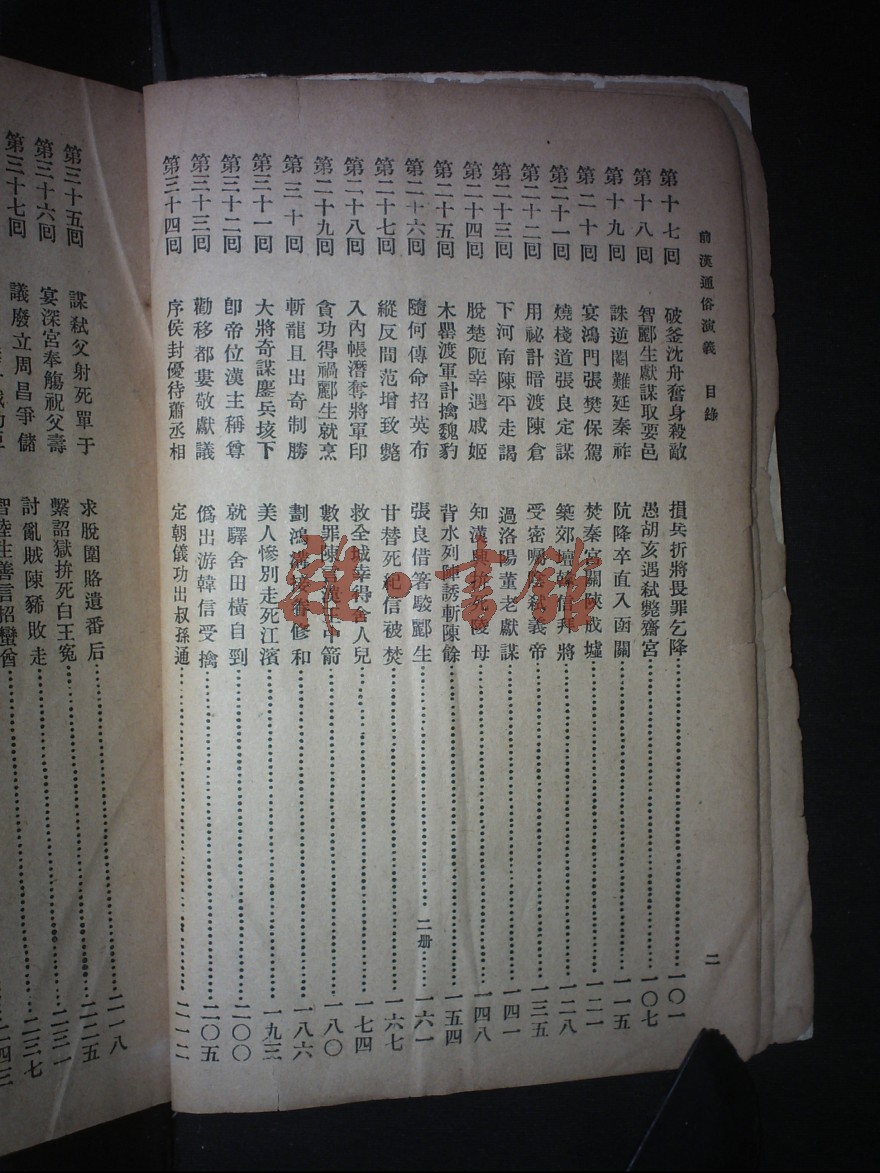 前漢通俗演義 目錄 二
第十七回 破釜沈舟奮身殺敵 損兵折將畏罪乞降 一〇一
第十八回 智酈生獻謀取要邑 愚胡亥遇弒斃齋宮 一〇七
第十九回 誅逆閹難延秦祚 阬降卒直入函關 一一五
第二十回 宴鴻門張樊保駕 焚秦宮關陝成墟 一二一
第二十一回 燒棧道張良定謀 築郊壇韓信拜將 一二八
第二十二回 用祕計暗渡陳倉 受密囑陰弒義帝 一三五
第二十三回 下河南陳平走謁 過洛陽董老獻謀 一四一
第二十四回 脫楚阨幸遇戚姬 知漢興拚死陵母 一四八
第二十五回 木罌渡軍計擒魏豹 背水列陣誘斬陳餘 一五四
第二十六回 隨何傳命招英布 張良借箸駁酈生 二册 一六一
第二十七回 縱反間范增致斃 甘替死紀信被焚 一六七
第二十八回 入內帳潛奪將軍印 救全城幸得舍人兒 一七四
第二十九回 貪功得禍酈生就烹 數罪陳言漢王中箭 一八〇
第三十回 斬龍且出奇制勝 劃鴻溝接眷修和 一八六
第三十一回 大將奇謀鏖兵垓下 美人慘別走死江濱 一九三
第三十二回 卽帝位漢主稱尊 就驛舍田橫自剄 二〇〇
第三十三回 勸移都婁敬獻議 僞出游韓信受擒 二〇五
第三十四回 序侯封優待蕭丞相 定朝儀功出叔孫通 二一二
第三十五回 謀弒父射死單于 求脫圍賂遺番后 二一八
第三十六回 宴深宮奉觴祝父壽 繫詔獄拚死白王冤 二二五
第三十七回 議廢立周昌爭儲 討亂賊陳豨敗走 二三一
智陸生善言招蠻酋 二三七
二四三
雜·書館